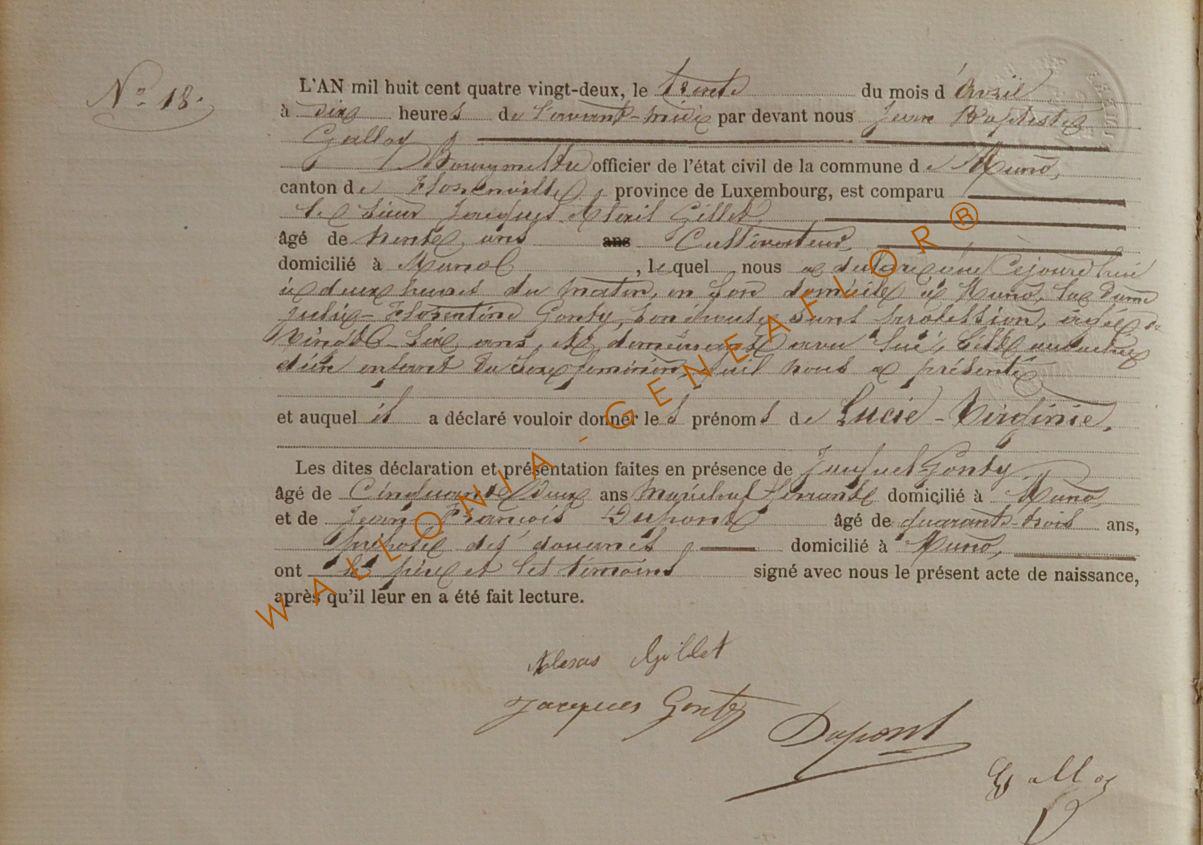 No 18.
L'AN mil huit cent quatre vingt-deux, le trente du mois d'Avril
à dix heures de l'avant-midi par devant nous Jean Baptiste
Galloy
Bourgmestre officier de l'état civil de la commune de Muno,
canton de Florenville, province de Luxembourg, est comparu
le sieur Jacques Alexis Gillet,
âgé de trente ans ans Cultivateur,
domicilié à Muno, lequel nous a déclaré que Cejourd'hui
à deux heures du matin, en son domicile à Muno, la Dame
Florentine Gonty, son épouse sans profession, âgée de
vingt-six ans, et demeurant avec lui, est accouchée
d'un enfant du sexe féminin, qu'il nous a présenté
et auquel il a déclaré vouloir donner les prénoms de Lucie-Virginie.
Les dites déclaration et présentation faites en présence de Jacques Gonty,
âgé de Cinquante deux ans Maréchal ferrant domicilié à Muno,
et de Jean François Dupont âgé de quarante-trois ans,
préposé des douanes domicilié à Muno,
ont le père et les témoins signé avec nous le présent acte de naissance,
après qu'il leur en a été fait lecture.
Alexis Gillet
Jacques Gonty
Dupont
Galloy
WALLONIA-GENEAFLOR®